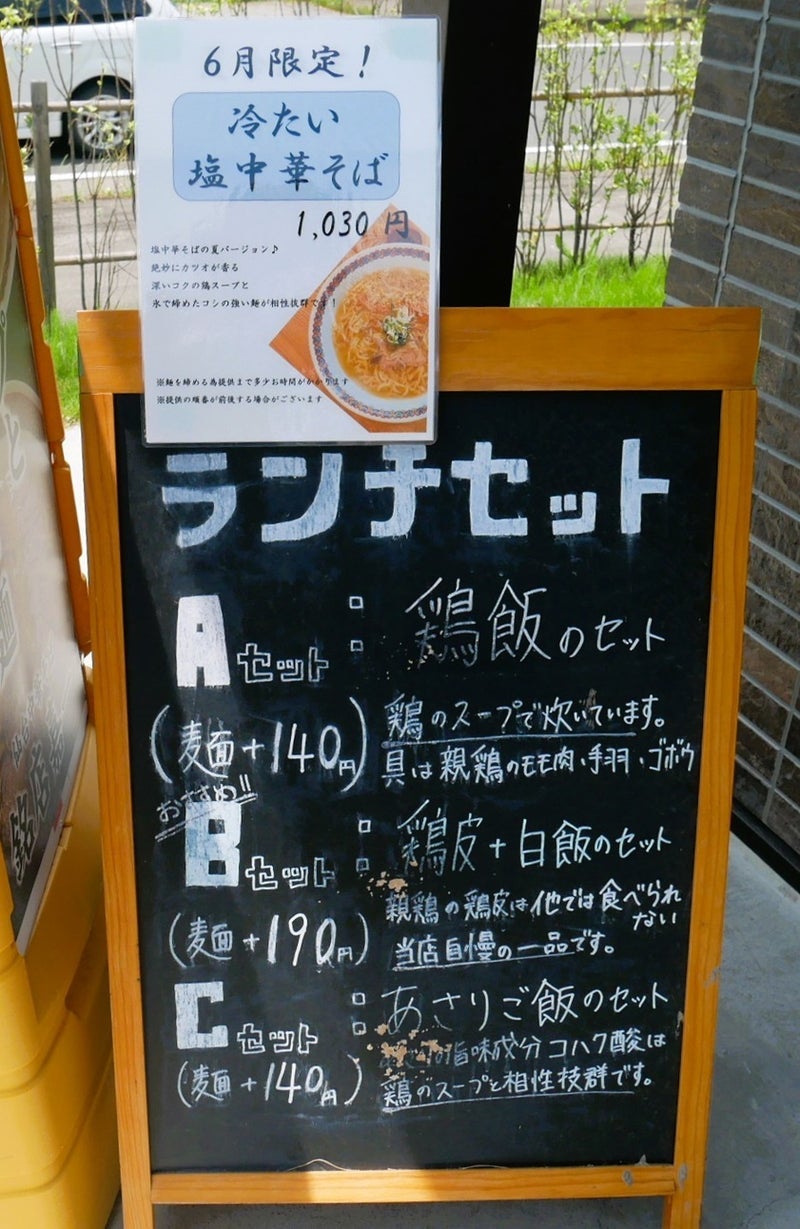 6月限定！
冷たい
塩中華そば
1,030 円
塩中華そばの夏バージョン♪
絶妙にカツオが香る
深いコクの鶏スープと
氷で締めたコシの強い麺が相性抜群です！
※麺を締める為提供まで多少お時間がかかります
※提供の順番が前後する場合がございます
ランチセット
Aセット : 鶏飯のセット
(麺+140円)
鶏のスープで炊いています。
具は親鶏のモモ肉・手羽・ゴボウ
おすすめ!!
Bセット : 鶏皮+白飯のセット
(麺+190円)
親鶏の鶏皮は他では食べられ
ない
当店自慢の一品です。
Cセット : あさりご飯のセット
(麺+140円)
の旨味成分コハク酸は
鶏のスープと相性抜群です。